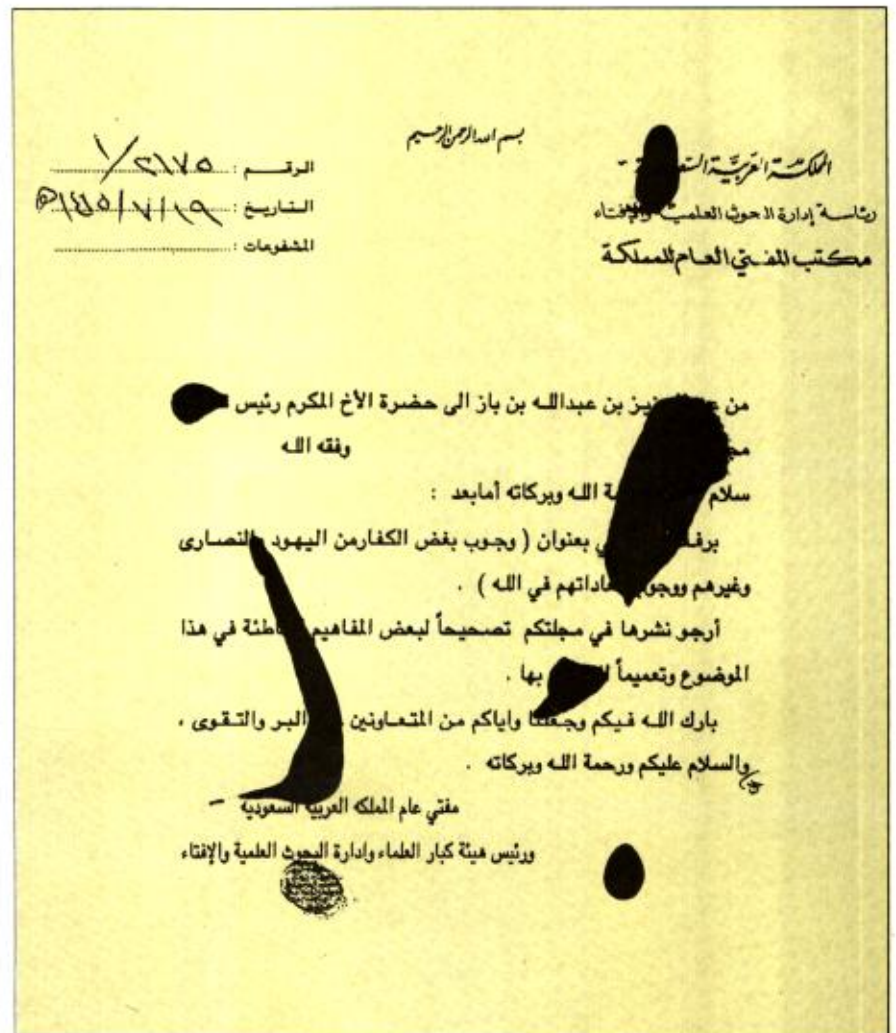 بسم الله الرحمن الرحيم
المملكة العربية
رئاسة إدارة البحوث العلمية والإفتاء
مكتب المفتي العام للمملكة
الرقم : ٢١٧٥/١
التاريخ : ١٩/٧/١٤١٥هـ
المشفوعات :
من بن عبدالله بن باز الى حضرة الأخ المكرم رئيس
وفقه الله
سلام الله وبركاته أمابعد :
بعنوان ( وجوب بغض الكفارمن اليهود والنصارى
وغيرهم في الله ) .
أرجو نشرها في مجلتكم تصحيحاً لبعض المفاهيم في هذا
الموضوع وتعميماً بها .
بارك الله فيكم وجعلنا واياكم من المتعاونين البر والتقوى ،
والسلام عليكم ورحمة الله وبركاته .
مفتي عام المملكه العربية السعودية
ورئيس هيئة كبار العلماء وادارة البحوث العلمية والإفتاء